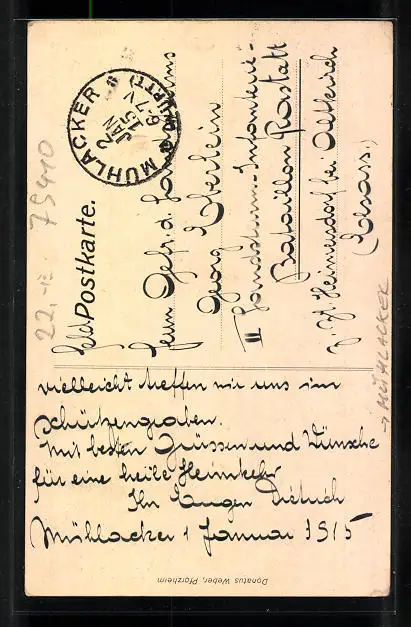 vielleicht treffen wir uns im
Schützengraben.
Mit besten Grüssen und Wünsche
für eine heile Heimkehr
Ihr Eugen Dietrich
Mühlacker 1 Januar 1915
Feld Postkarte.
MÜHLACKER
2 JAN 15
6-7 V
(WÜRTT)
Herrn Gefr. d.
Georg Eberlein
III Landsturm-Infanterie-
Bataillon Rastatt
z. Zt. Heimersdorf bei Altkirch
(Elsass.)
22,-12 75440
→ MÜHLACKER
Donatus Weber, Pforzheim